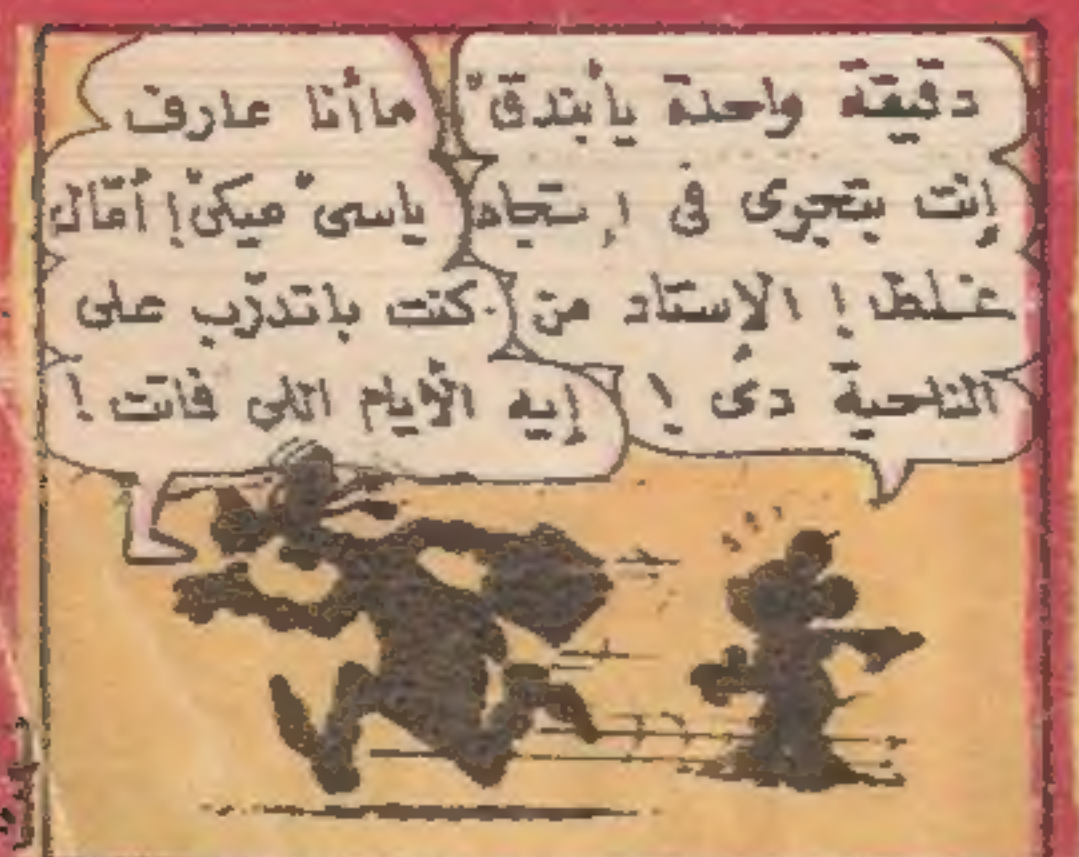 دقيقة واحدة يا "بندق"
إنت بتجرى فى إتجاه
غلط! الإستاد من
الناحية دى!
ما أنا عارف
ياسى "ميكى"! أمّال
كنت باتدرّب على
إيه الأيام اللى فاتت!